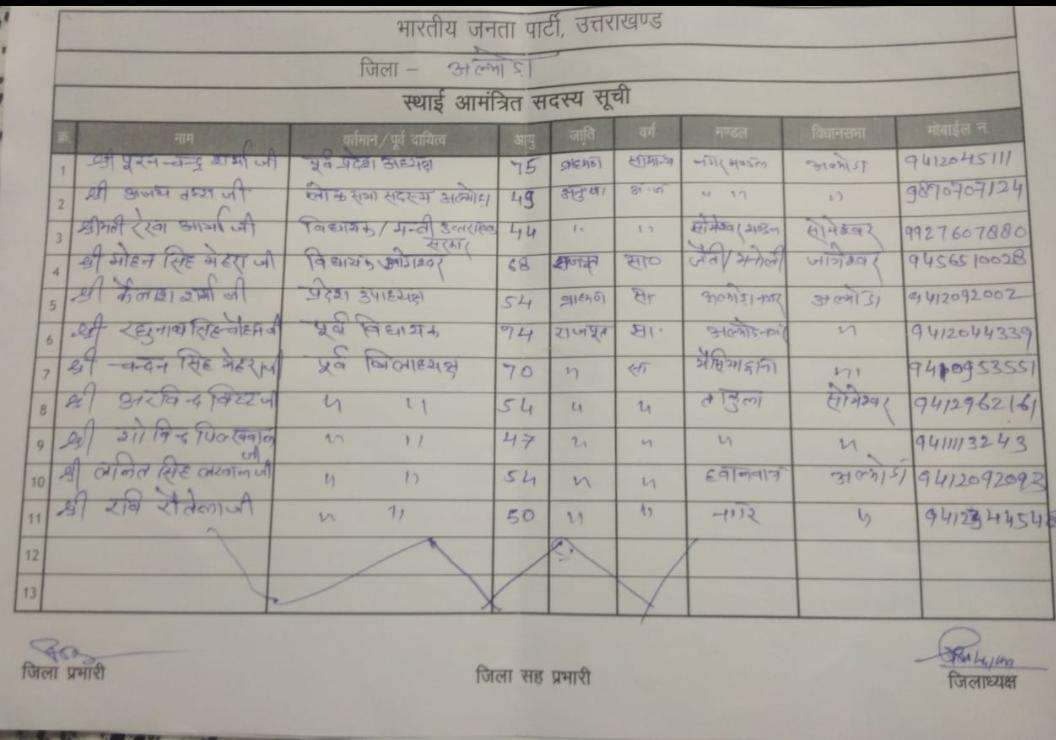 भारतीय जनता पार्टी, उत्तराखण्ड
जिला - अल्मोडा
स्थाई आमंत्रित सदस्य सूची
क्र नाम वर्तमान/पूर्व दायित्व आयु जाति वर्ग मण्डल विधानसभा मोबाईल न
1 श्री पूरन चन्द्र शर्मा जी पूर्व प्रदेश अध्यक्ष 75 ब्राह्मण सामान्य नगर मण्डल अल्मोडा 9412045111
2 श्री अजय टम्टा जी लोक सभा सदस्य अल्मोडा 49 " " " 9890707124
3 श्रीमती रेखा आर्या जी विधायक/मन्त्री उत्तराखण्ड सरकार 44 " " सोमेश्वर मण्डल सोमेश्वर 9927607880
4 श्री मोहन सिंह मेहरा जी विधायक जागेश्वर 68 राजपूत सा० जैंती/ जागेश्वर 9456510028
5 श्री कैलाश शर्मा जी प्रदेश उपाध्यक्ष 54 ब्राह्मण सा अल्मोडा नगर अल्मोडा 9412092002
6 श्री रघुनाथ सिंह चौहान जी पूर्व विधायक 74 राजपूत सा. अल्मोडा नगर " 9412044339
7 श्री चन्दन सिंह मेहरा जी पूर्व जिलाध्यक्ष 70 " सा " 9410953551
8 श्री अरविन्द बिष्ट जी " " 54 " " ताकुला सोमेश्वर 9412962161
9 श्री गोविन्द पिलख्वाल जी " " 47 " " " " 9411113243
10 श्री ललित सिंह लटवाल जी " " 54 " " हवालबाग अल्मोडा 9412092093
11 श्री रवि रौतेला जी " " 50 " " नगर "
12
13
जिला प्रभारी जिला सह प्रभारी जिलाध्यक्ष